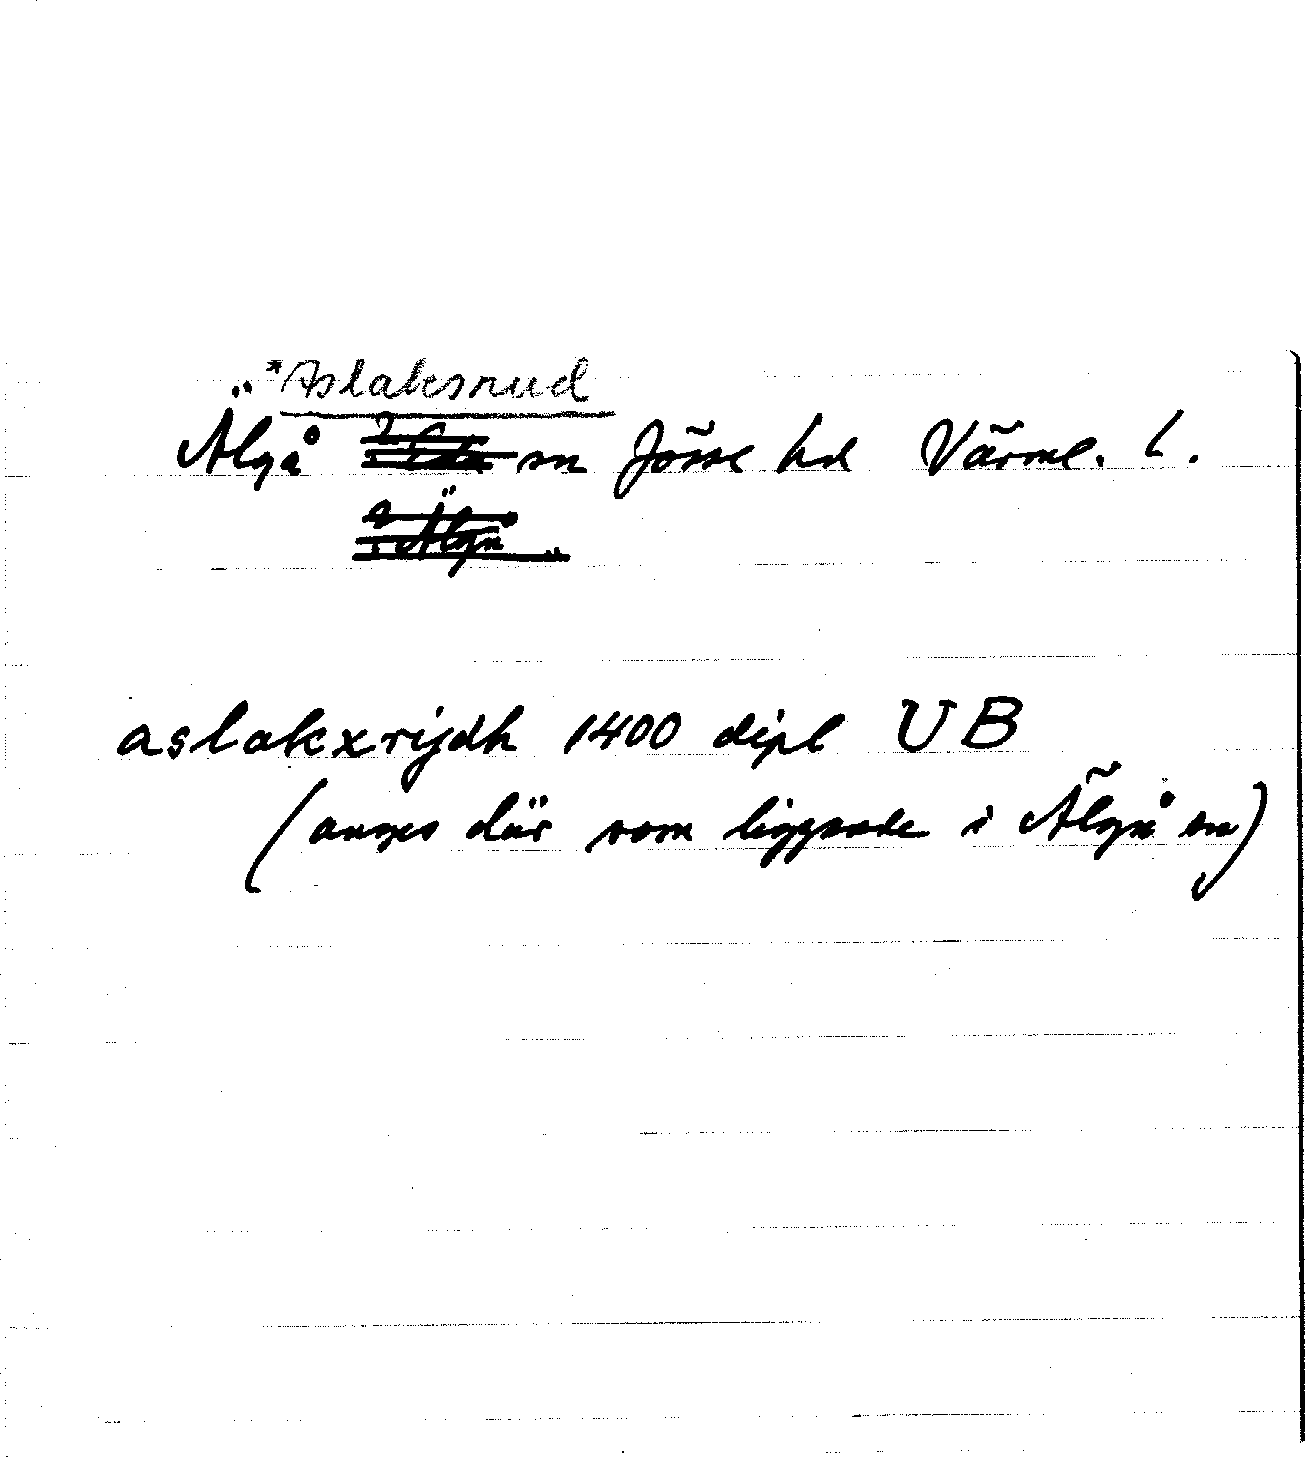 *Aslaksrud
Älgå sn Jösse hd Värml. l.
aslakxrijdh 1400 dipl UB
(anges där som liggande i Älgå sn)